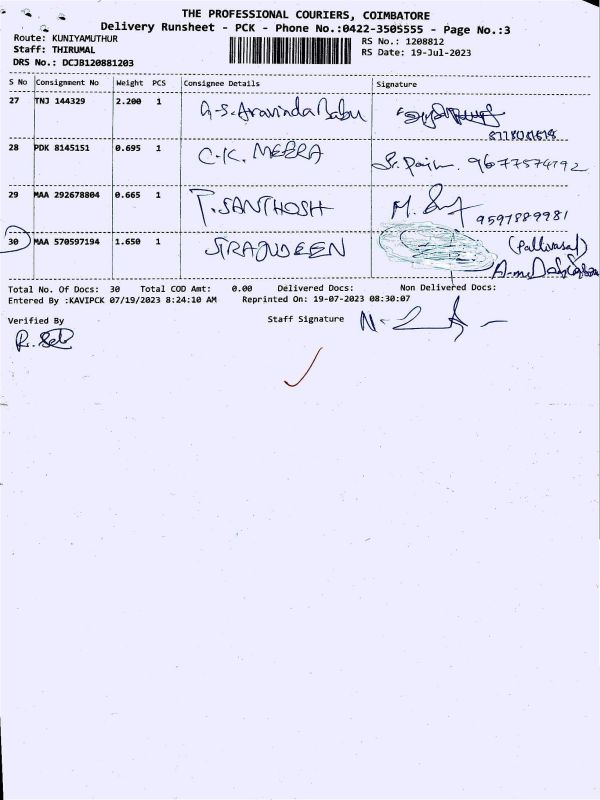 THE PROFESSIONAL COURIERS, COIMBATORE
Delivery Runsheet - PCK - Phone No.:0422-3505555 - Page No.:3
Route: KUNIYAMUTHUR RS No.: 1208812
Staff: THIRUMAL RS Date: 19-Jul-2023
DRS No.: DCJB120881203
S No Consignment No Weight PCS Consignee Details Signature
27 TNJ 144329 2.200 1 A.S. Aravinda Babu
28 PDK 8145151 0.695 1 C.K. MEERA 9677574792
29 MAA 292678804 0.665 1 P. SANTHOSH 9597889981
30 MAA 570597194 1.650 1 SIRAJUDEEN (Pallivasal)
Total No. Of Docs: 30 Total COD Amt: 0.00 Delivered Docs: Non Delivered Docs:
Entered By :KAVIPCK 07/19/2023 8:24:10 AM Reprinted On: 19-07-2023 08:30:07
Verified By Staff Signature